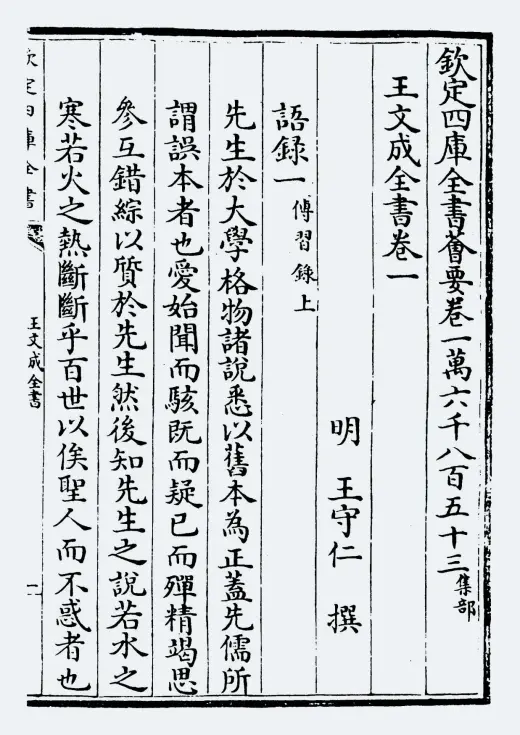 欽定四庫全書薈要卷一萬六千八百五十三集部
王文成全書卷一
明 王守仁 撰
語録一 傳習錄上
先生於大學格物諸説悉以舊本為正葢先儒所
謂誤本者也愛始聞而駭既而疑已而殫精竭思
參互錯綜以質於先生然後知先生之説若水之
寒若火之熱斷斷乎百世以俟聖人而不惑者也
欽定四庫全書
王文成全書
一